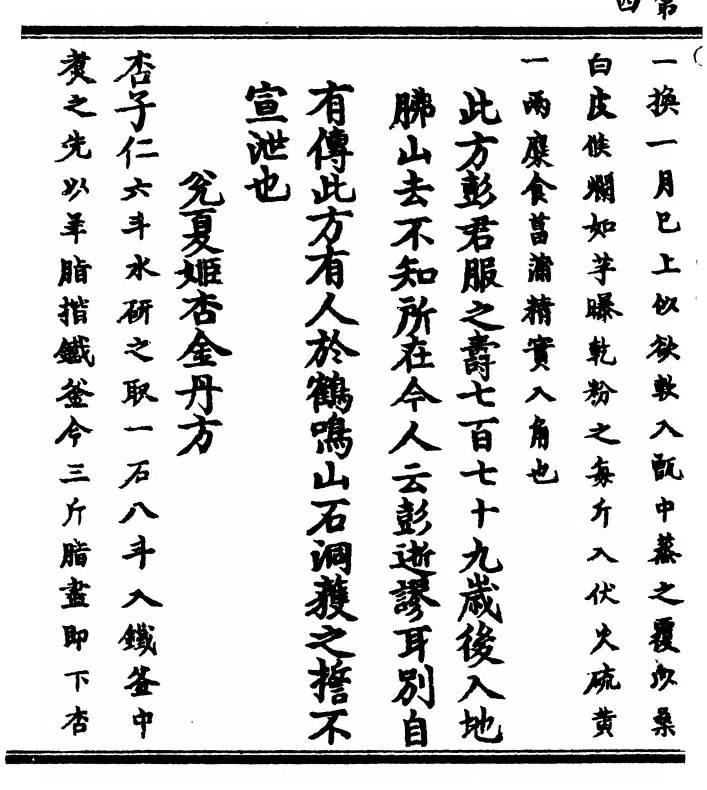 第
四
一換一月巳上似欲軟入甑中蒸之覆以桑
白皮候爛如芋曝乾粉之每斤入伏火硫黃
一兩糜食菖蒲精實入角也
此方彭君服之壽七百七十九歲後入地
肺山去不知所在今人云彭逝謬耳別自
有傳此方有人於鶴鳴山石洞獲之誓不
宣泄也
兊夏姬杏金丹方
杏子仁六斗水研之取一石八斗入鐵釜中
煑之先以羊脂揩鐵釜令三斤脂盡即下杏